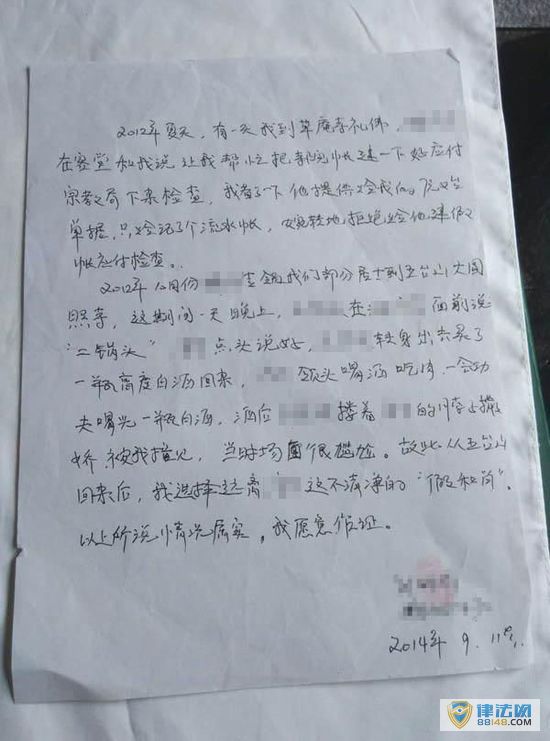 2012年夏天，有一天我到草庵寺礼佛，
在客堂和我说让我帮忙把寺院帐建一下好应付
宗教局下来检查，我看了下他提供给我的
单据，只给记了个流水帐，婉转地拒绝给他建假
帐应付检查。
2012年 月份 我们部分居士到五台山大圆
照寺，这期间一天晚上， 在 面前说
"二锅头" 点头说好， 转身出去买了
一瓶高度白酒回来， 领头喝酒吃肉一会功
夫喝光一瓶白酒，酒后 搂着 的 撒
娇被我撞见，当时场面很尴尬。故此从五台山
回来后，我选择远离 这不清净的"假和尚"。
以上所说情况属实，我愿意作证。
2014年 9. 11号.
律法网
88148.COM